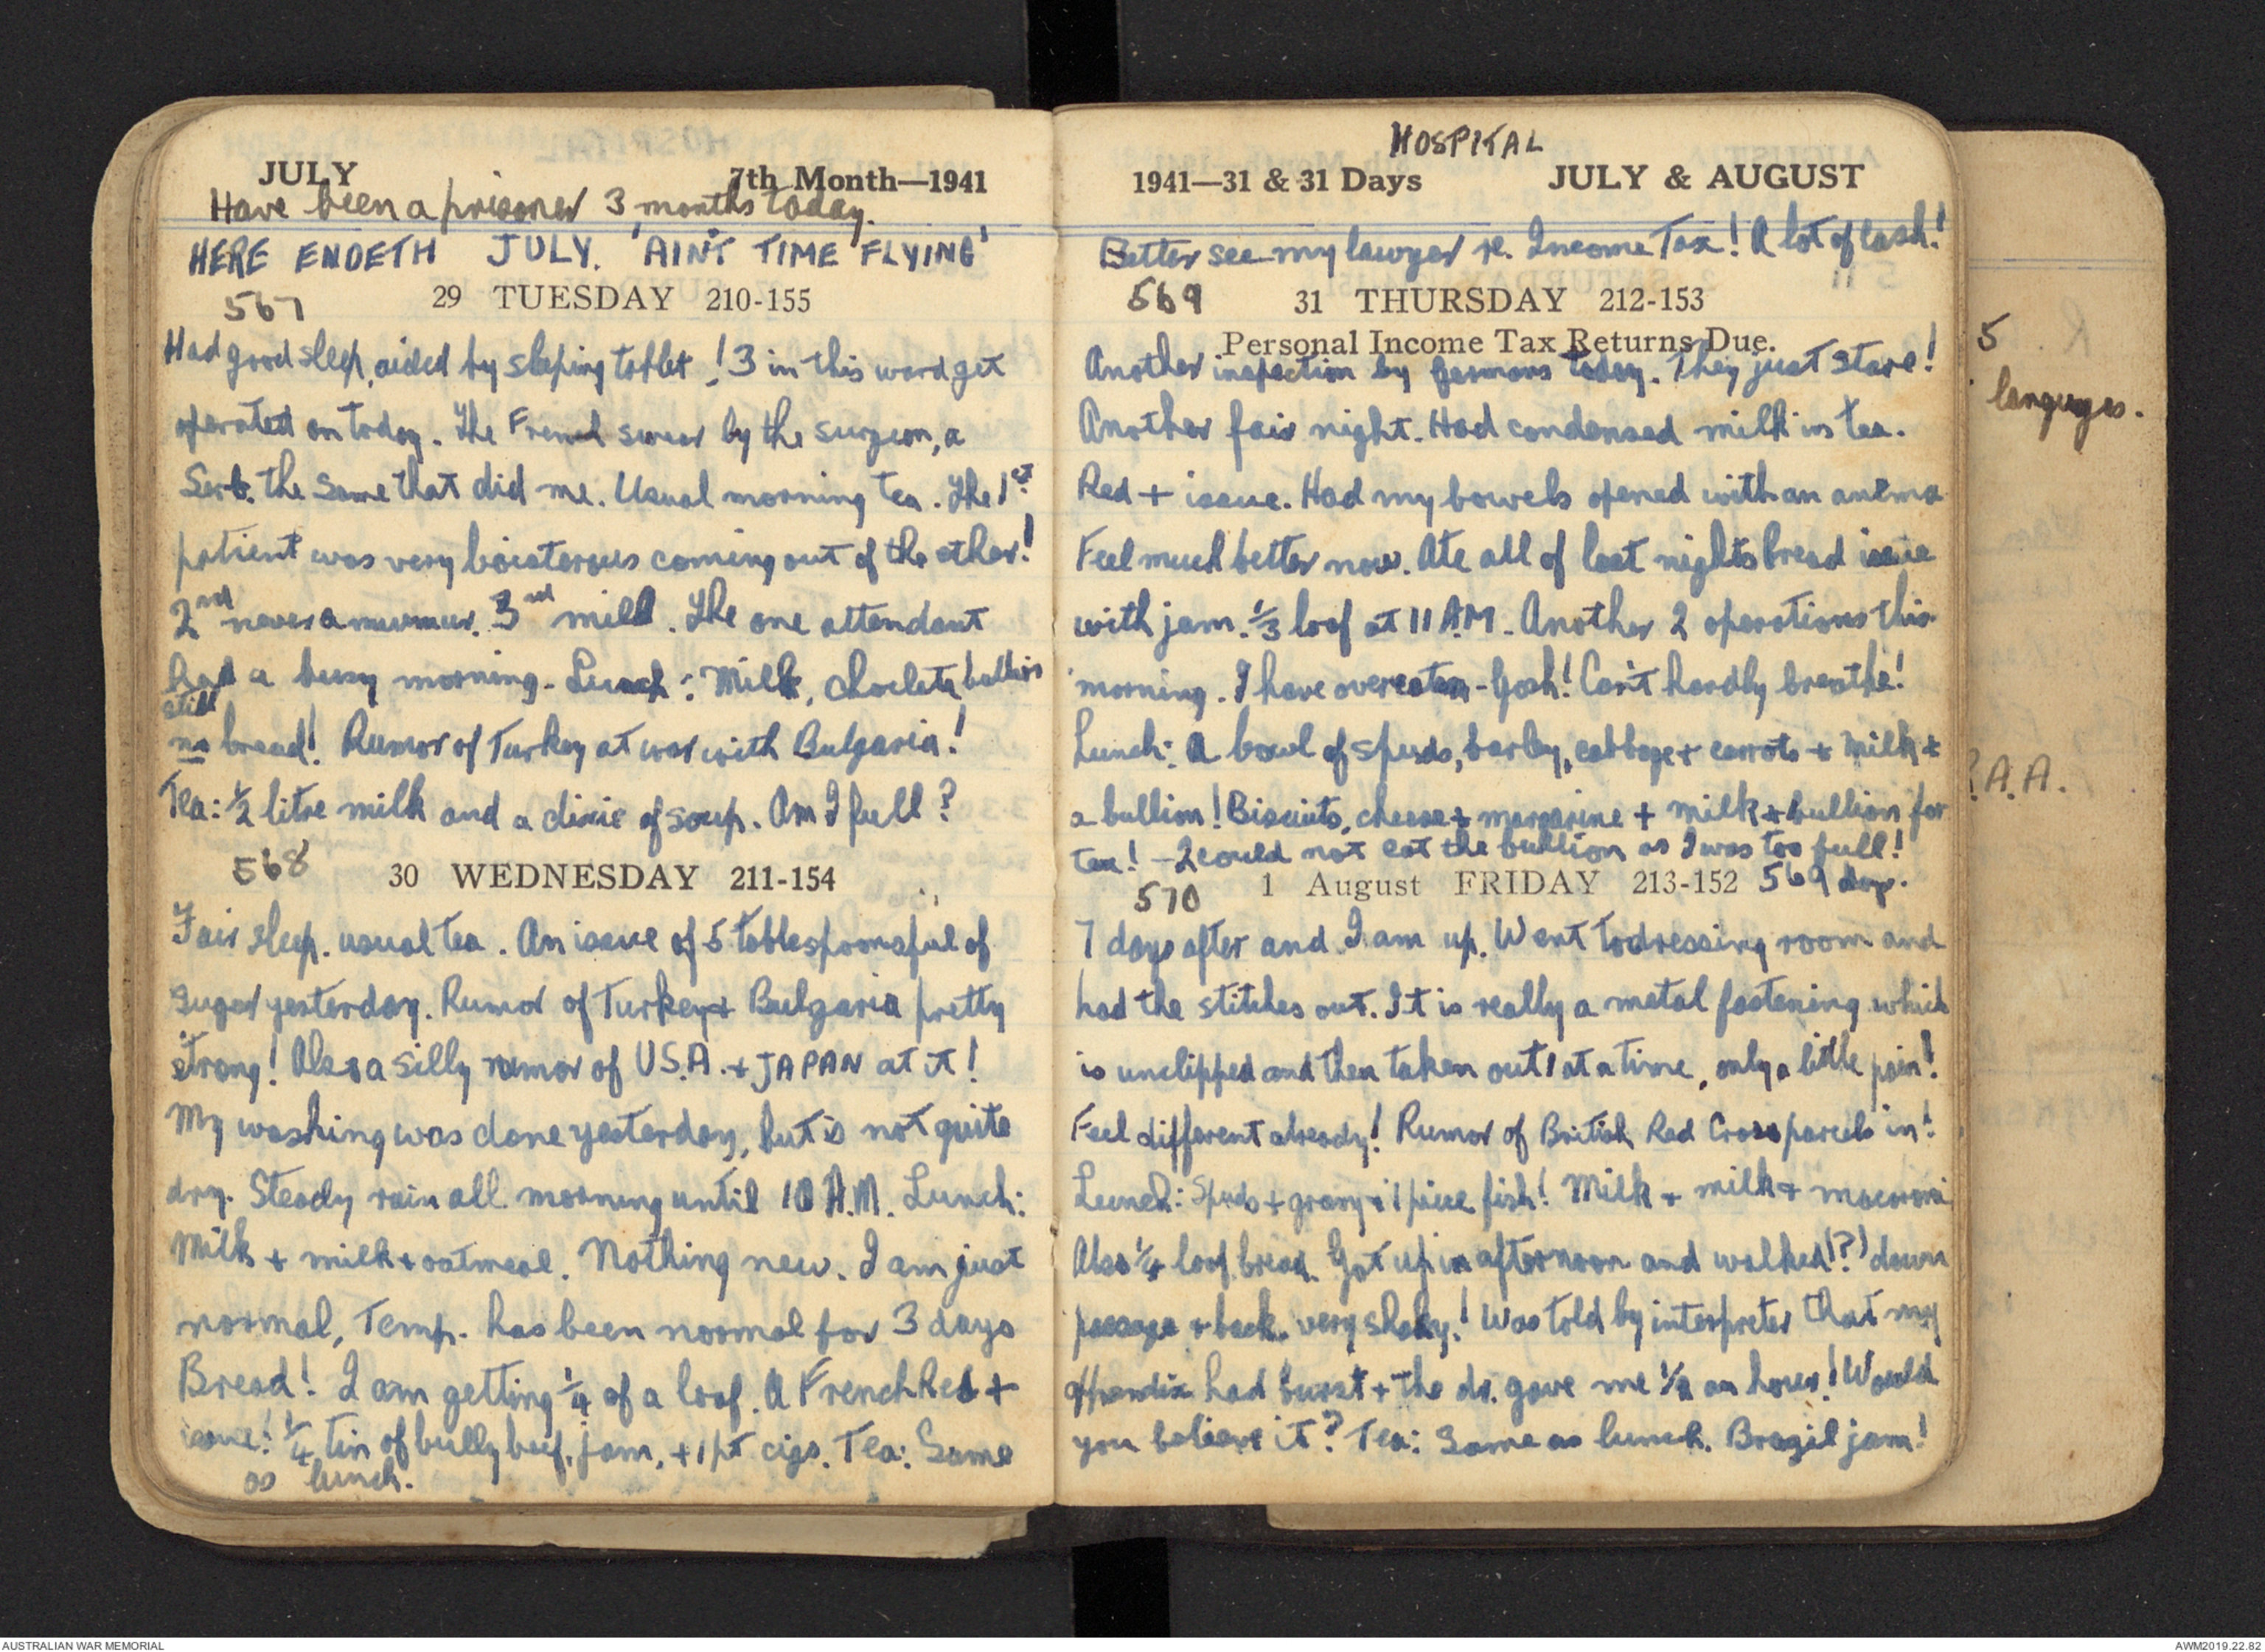 JULY 7th Month—1941
Have been a prisoner 3 months today.
HERE ENDETH JULY. 'AIN'T TIME FLYING'
567 29 TUESDAY 210-155
Had good sleep, aided by sleping tablet! 3 in this ward get
operated on today. The French swear by the surgeon, a
Serb. the same that did me. Usual morning tea. The 1st
patient was very boisterous coming out of the ether!
2nd never a murmur. 3rd mild. The one attendant
had a busy morning. Lunch: Milk, choclate, bullion
still
no bread! Rumor of Turkey at war with Bulgaria!
Tea: ½ litre milk and a dixie of soup. Am I full?
568 30 WEDNESDAY 211-154
Fair sleep. usual tea. An issue of 5 tablespoonsful of
sugar yesterday. Rumor of Turkey + Bulgaria pretty
strong! Also a silly rumor of U.S.A. + JAPAN at it!
My washing was done yesterday, but is not quite
dry. Steady rain all morning until 10 A.M. Lunch:
Milk + milk + oatmeal. Nothing new. I am just
normal, Temp. has been normal for 3 days
Bread! I am getting ¼ of a loaf. A French Red +
issue! ¼ tin of bully beef, jam, + 1 pt cigs. Tea: Same
as lunch.
HOSPITAL
1941—31 & 31 Days JULY & AUGUST
Better see my lawyer re. Income Tax! A lot of cash!
569 31 THURSDAY 212-153
Personal Income Tax Returns Due.
Another inspection by germans today. They just stare!
Another fair night. Had condensed milk in tea.
Red + issue. Had my bowels opened with an anema
Feel much better now. Ate all of last nights bread issue
with jam. ⅓ loaf at 11 A.M. Another 2 operations this
morning. I have overeaten - Gosh! Can't hardly breathe!
Lunch: A bowl of spuds, barley, cabbage + carrots + milk +
a bullion! Biscuits, cheese + margarine + milk + bullion for
tea! - I could not eat the bullion as I was too full!
570 1 August FRIDAY 213-152 569 days.
7 days after and I am up. Went to dressing room and
had the stitches out. It is really a metal fastening which
is unclipped and then taken out 1 at a time, only a little pain!
Feel different already! Rumor of British Red Cross parcels in!
Lunch: Spuds + gravy + 1 piece fish! Milk + milk + macoroni
Also ¼ loaf bread. Got up in afternoon and walked (?) down
passage + back. very shaky! Was told by interpreter that my
appendix had burst + the dr. gave me ½ an hour! Would
you believe it? Tea: Same as lunch. Brazil jam!
5
languages.
A.A.
AUSTRALIAN WAR MEMORIAL
AWM2019.22.82